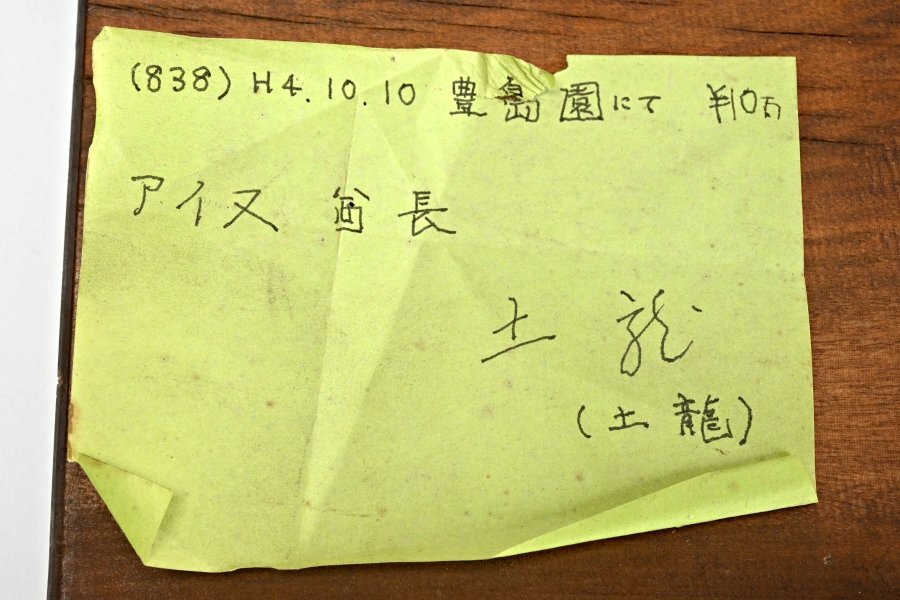 (838) H4.10.10 豊島園にて ¥10万
アイヌ 酋長
土龍
(土龍)